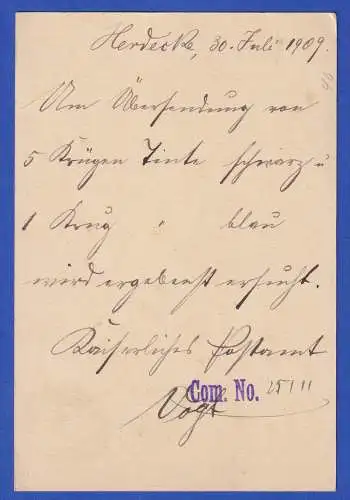 Herdecke, 30. Juli 1909.
Um Übersendung von
5 Krügen Tinte schwarz u
1 Krug " blau
wird ergebenst ersucht.
Kaiserliches Postamt
Com. No. 25111
Vogt